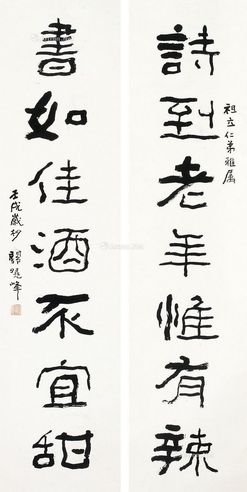 詩到老年惟有辣
祖立仁弟雅屬
書如佳酒不宜甜
壬戌歲杪